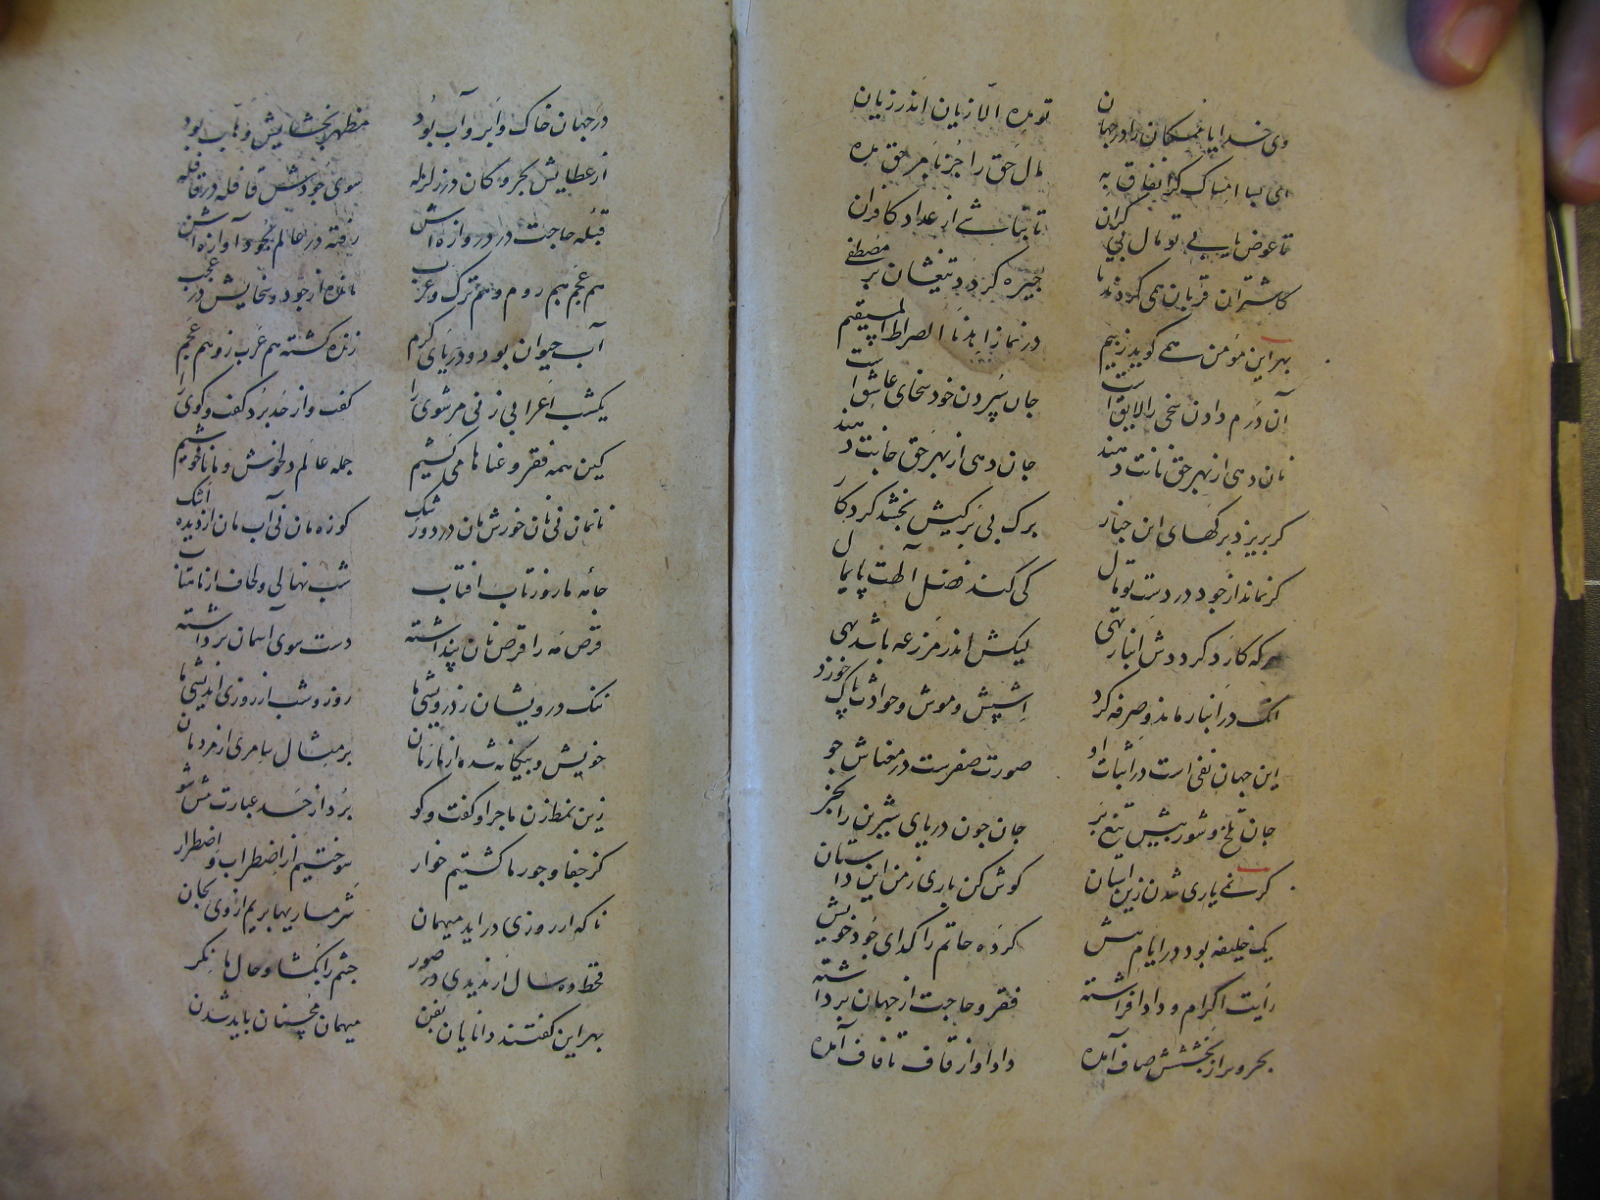 وی خدایا ممسکان را در جهان تو مده الا زیان اندر زیان
ای بسا امساک کز انفاق به مال حق را جز بامر حق مده
تا عوض یابی تو مال بی کران تا نباشی از عداد کافران
کاشتران قربان همی کردند تا چیره گردد تیغشان بر مصطفی
بهر این مؤمن همی گوید ز بیم در نماز اهدنا الصراط المستقیم
آن درم دادن سخی را لایق است جان سپردن خود سخای عاشق است
نان دهی از بهر حق نانت دهند جان دهی از بهر حق جانت دهند
گر بریزد برگهای این چنار برگ بی برگیش بخشد کردگار
گر نماند از جود در دست تو مال کی کند فضل الهت پایمال
هرکه کارد گردد انبارش تهی لیکش اندر مزرعه باشد بهی
انک در انبار ماند و صرفه کرد اشپش و موش و حوادث پاک خورد
این جهان نفی است در اثبات جو صورت صفرست در معناش جو
جان تلخ و شور پیش تیغ بر جان چون دریای شیرین را بخر
گر نمی یاری شدن زین آستان گوش کن باری ز من این داستان
یک خلیفه بود در ایام پیش کرده حاتم را گدای جود خویش
رایت اکرام و داد افراشته فقر و حاجت از جهان برداشته
بحر و بر از بخششش صاف آمده داد او از قاف تا قاف آمده
در جهان خاک و ابر و آب بود مظهر بخشایش وهاب بود
از عطایش بحر و کان در زلزله سوی جودش قافله در قافله
قبله حاجت در دروازه اش رفته در عالم بجود آوازه اش
هم عجم هم روم و هم ترک و عرب مانده از جود و سخایش در عجب
آب حیوان بود و دریای کرم زنده گشته هم عرب زو هم عجم
یکشب اعرابی زنی مر شوی را گفت و از حد برد گفت و گوی را
کین همه فقر و عنا ما می کشیم جمله عالم در خوش و ما ناخوشیم
نانمان نی نان خورش مان درد و رشک کوزه مان نی آب مان از دیده اشک
جامه ما روز تاب افتاب شب نهالی و لحاف از ماهتاب
قرص مه را قرص نان پنداشته دست سوی آسمان برداشته
ننک درویشان ز درویشی ما روز و شب از روزی اندیشی ما
خویش و بیگانه شده از ما رمان بر مثال سامری از مردمان
زین نمط زن ماجرا و گفت و گو برد از حد عبارت پیش شو
کز جفا و جور ما گشتیم خوار سوختیم از اضطراب و اضطرار
تا که ار روزی دراید میهمان شرمساریها بریم از وی بجان
قحط ده سال ار ندیدی در صور چشم را بگشا و حال ما نگر
بهر این گفتند دانایان بفن میهمان محسنان باید شدن